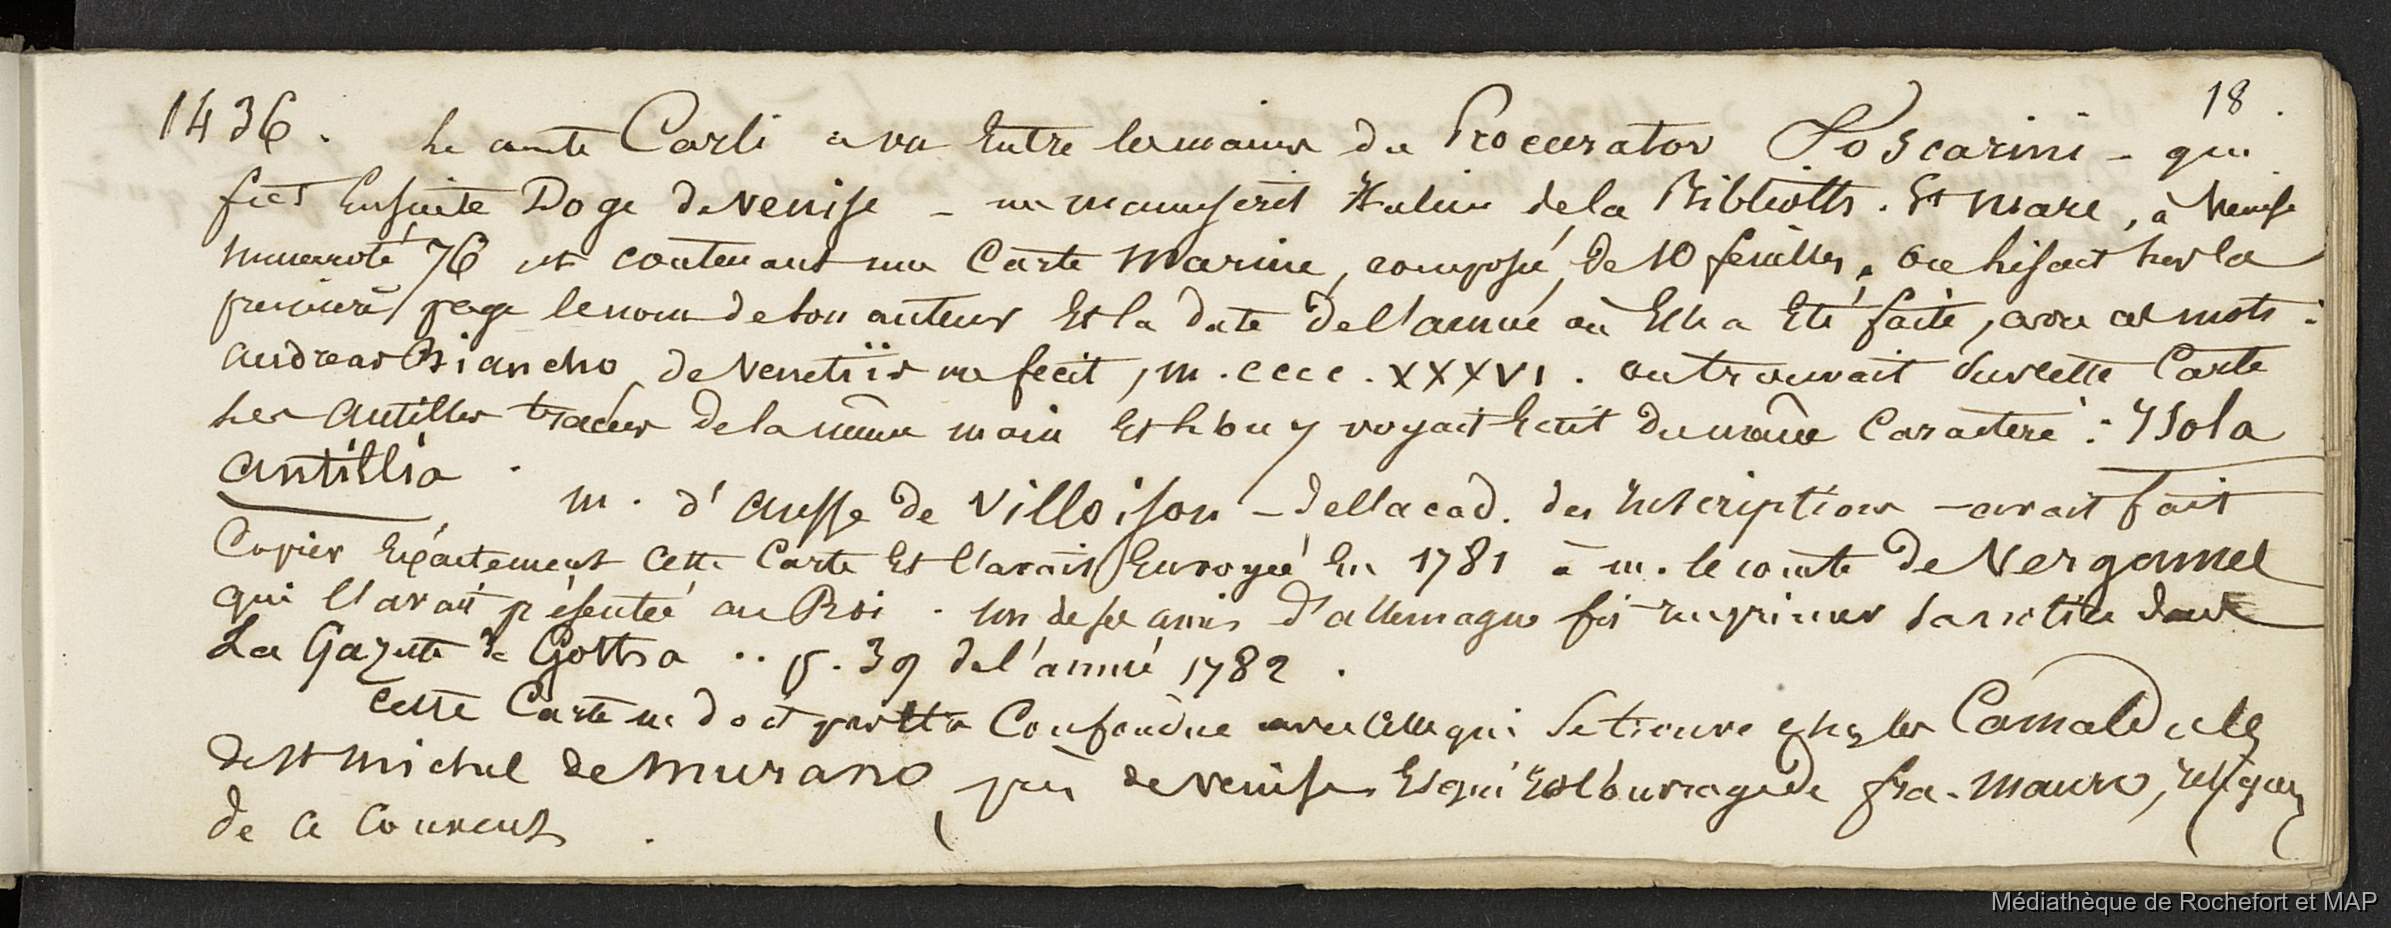 18.
1436. Le comte Carli a vu Entre les mains du Procurator Foscarini - qui
fut Ensuite Doge de Venise - un manuscrit Italien de la Biblioth. St Marc, à Venise
numeroté 76 et contenant une Carte Marine, composée, de 10 feuilles, on lisait sur la
premiere page le nom de son auteur Et la date de l'année où Elle a Eté faite, avec ces mots :
andreas Biancho, de Venetiis me fecit, m. cccc. XXXVI. on trouvait sur cette Carte
Les Antilles tracées de la même main Et l'on y voyait Ecrit du même Caractere : Ysola
antillia.
m. d'ansse de Villoison - de l'acad. des Inscriptions - avait fait
Copier Exactement Cette Carte Et l'avait Envoyée En 1781 à m. le comte de Vergennes
qui l'avait présentée au Roi. Un de ses amis d'allemagne fit imprimer sa notice dans
La Gazette de Gottha .. p. 39 de l'année 1782.
Cette Carte ne doit pas etre Confondue avec celle qui Se trouve chez les Camaldules
de St michel de Murano, près de Venise Et qui Est l'ouvrage de fra. Mauro, religieux
de ce Couvent.
Médiathèque de Rochefort et MAP